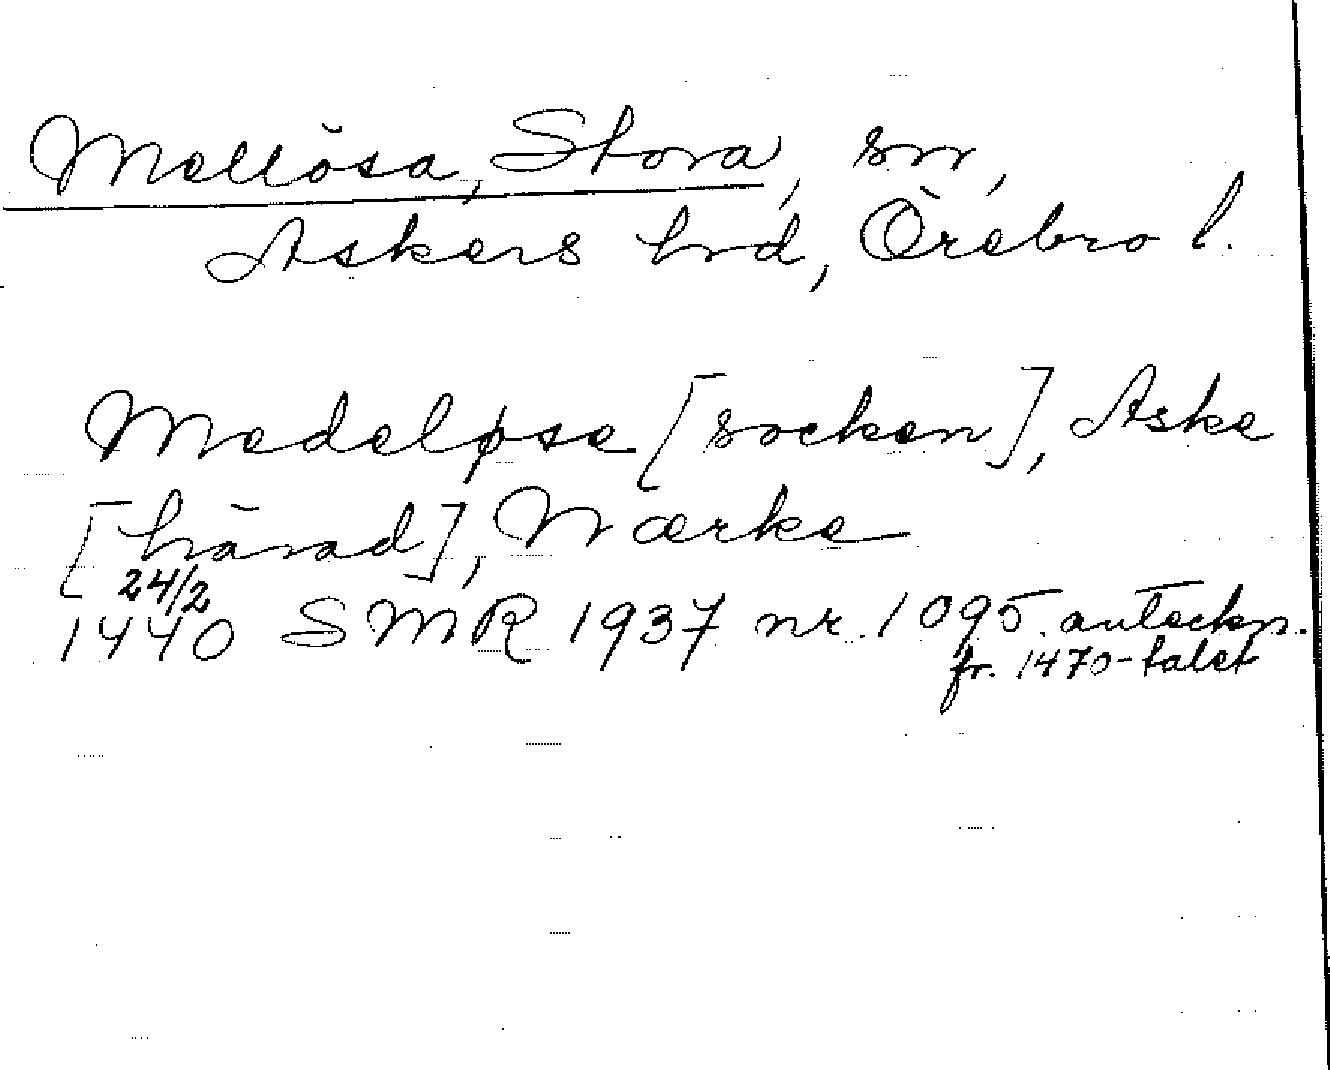 Mellösa, Stora, sn,
Askers hrd, Örebro l.
Medeløse [socken], Aske
[härad], Nærke
24/2
1440 SMR 1937 nr. 1095. anteckn.
fr. 1470-talet